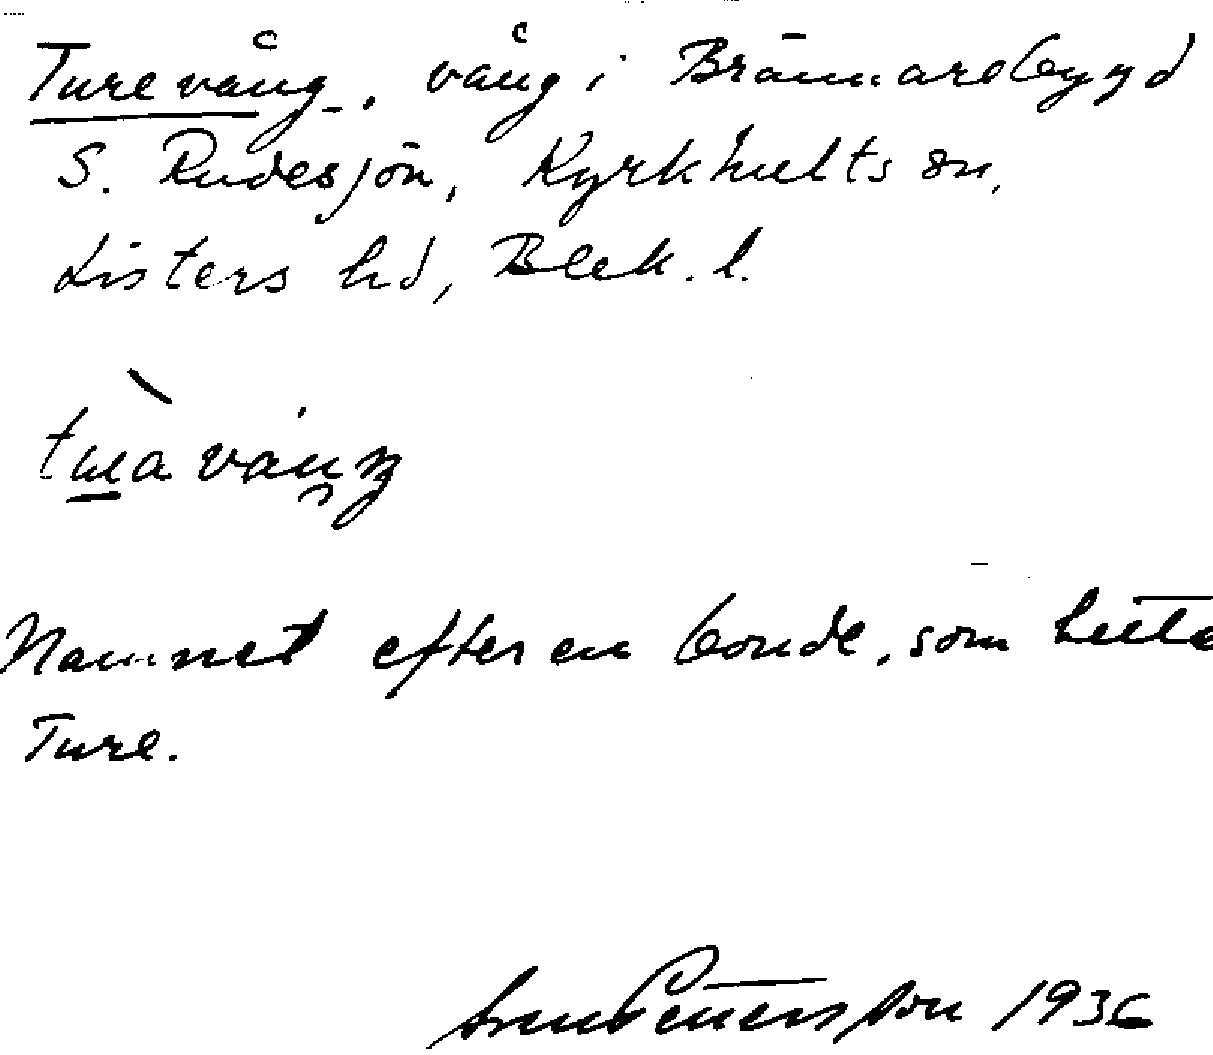 Turevång, vång i Brännarebygd
S. Rudesjön, Kyrkhults sn,
Listers hd, Blek. l.
Namnet efter en bonde, som hette
Ture.
Sven Petersson 1936